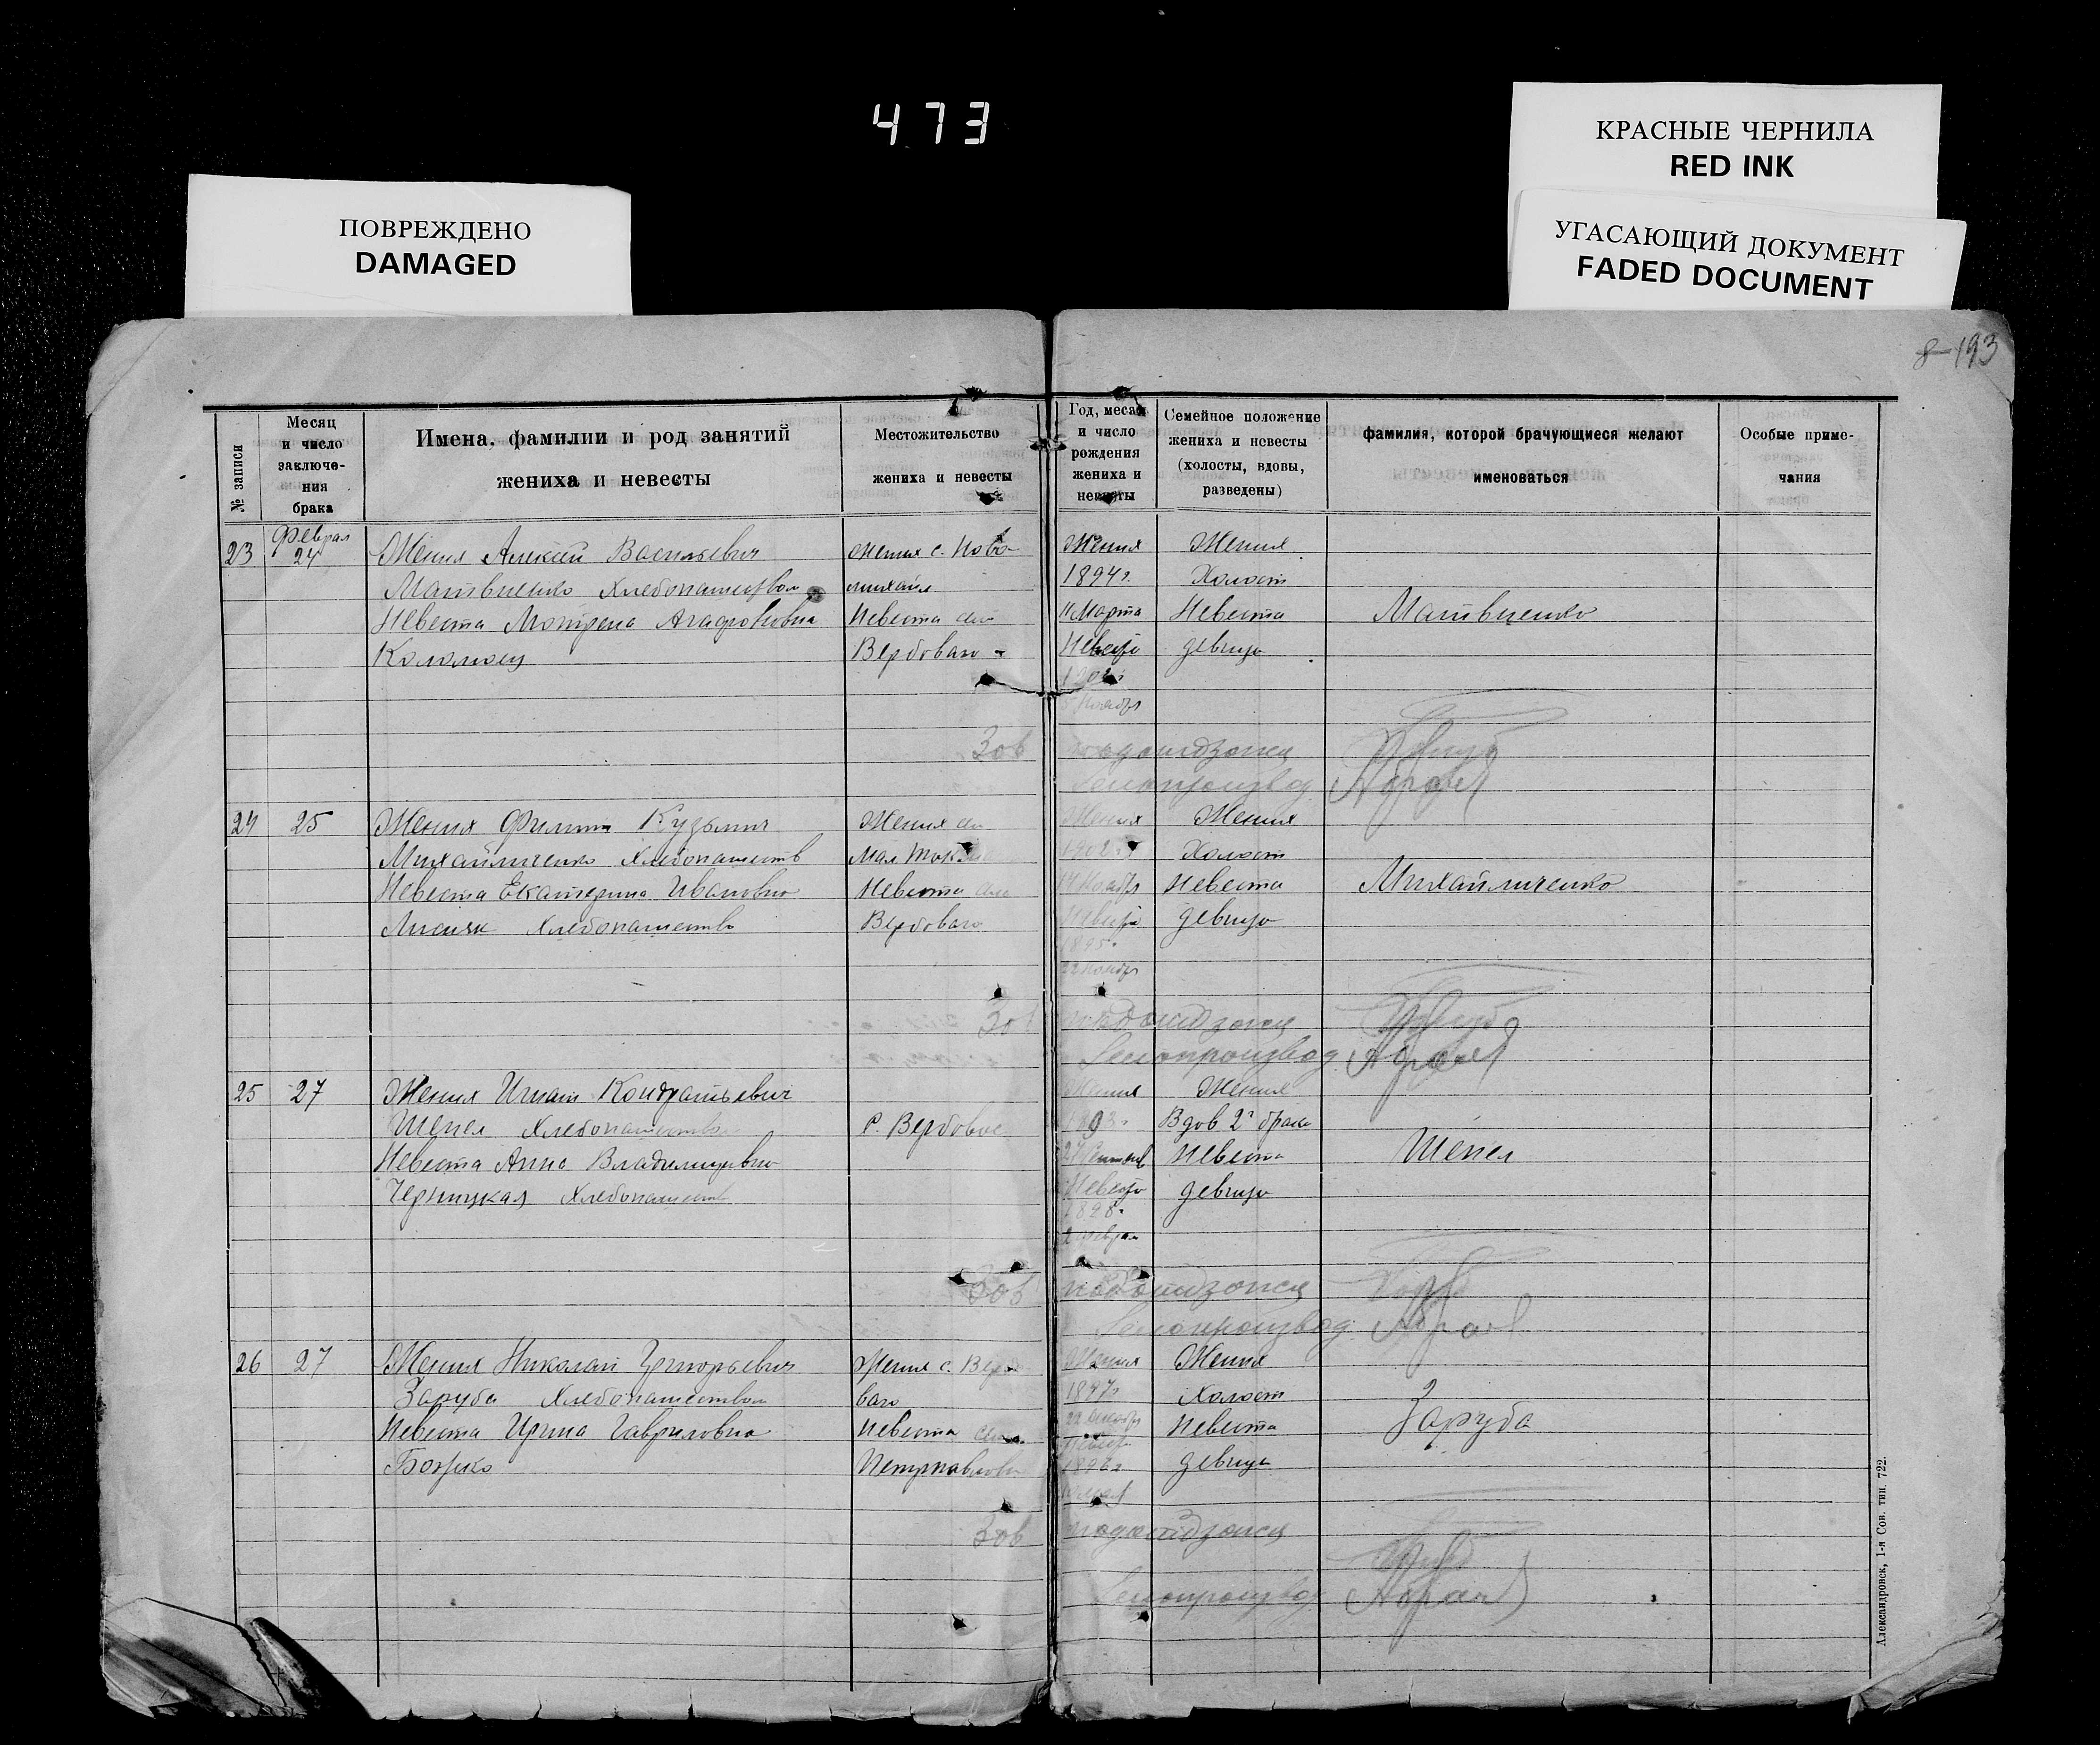 473
ПОВРЕЖДЕНО
DAMAGED
КРАСНЫЕ ЧЕРНИЛА
RED INK
УГАСАЮЩИЙ ДОКУМЕНТ
FADED DOCUMENT
8-193
№ записи
Месяц
и число
заключе-
ния
брака
Имена, фамилии и род занятий
жениха и невесты
Местожительство
жениха и невесты
Год, месяц
и число
рождения
жениха и
невесты
Семейное положение
жениха и невесты
(холосты, вдовы,
разведены)
фамилия, которой брачующиеся желают
именоваться
Особые приме-
чания
23
Феврал
24
Жених Алексей Васильевич
Матвиенко Хлебопашество
Невеста Мотрена Агафоновна
Коломоец
Жених с. Ново-
михайл
Невеста
Вербоваго
Жених
1894г.
11 Марта
Жених
Холост
Невеста
девица
Матвиенко
Зав подотдзапси
Делопроизвод
24
25
Жених Филипп Кузьмич
Михайличенко Хлебопашеств
Невеста Екатерина Ивановна
Лисняк Хлебопашество
Жених
Мал Ток
Невеста
Вербоваго
Жених
1895г.
22 Ноябр
Жених
Холост
Невеста
девица
Михайличенко
Зав подотдзапси
Делопроизвод
25
27
Жених Игнат Кондратьевич
Шепел Хлебопашество
Невеста Анна Владимировна
Черницкая Хлебопашеств
с. Вербовое
Жених
1893г.
Жених
Вдов 2й брак
Невеста
девица
Шепел
Зав подотдзапси
Делопроизвод
26
27
Жених Николай Григорьевич
Заруба Хлебопашество
Невеста Ирина Гавриловна
Божко
Жених с. Вербо
ваго
Невеста
Петропавловк
Жених
1897г
Жених
Холост
Невеста
девица
Заруба
Зав подотдзапси
Делопроизвод
Александровск, 1-я Сов. тип. 722.